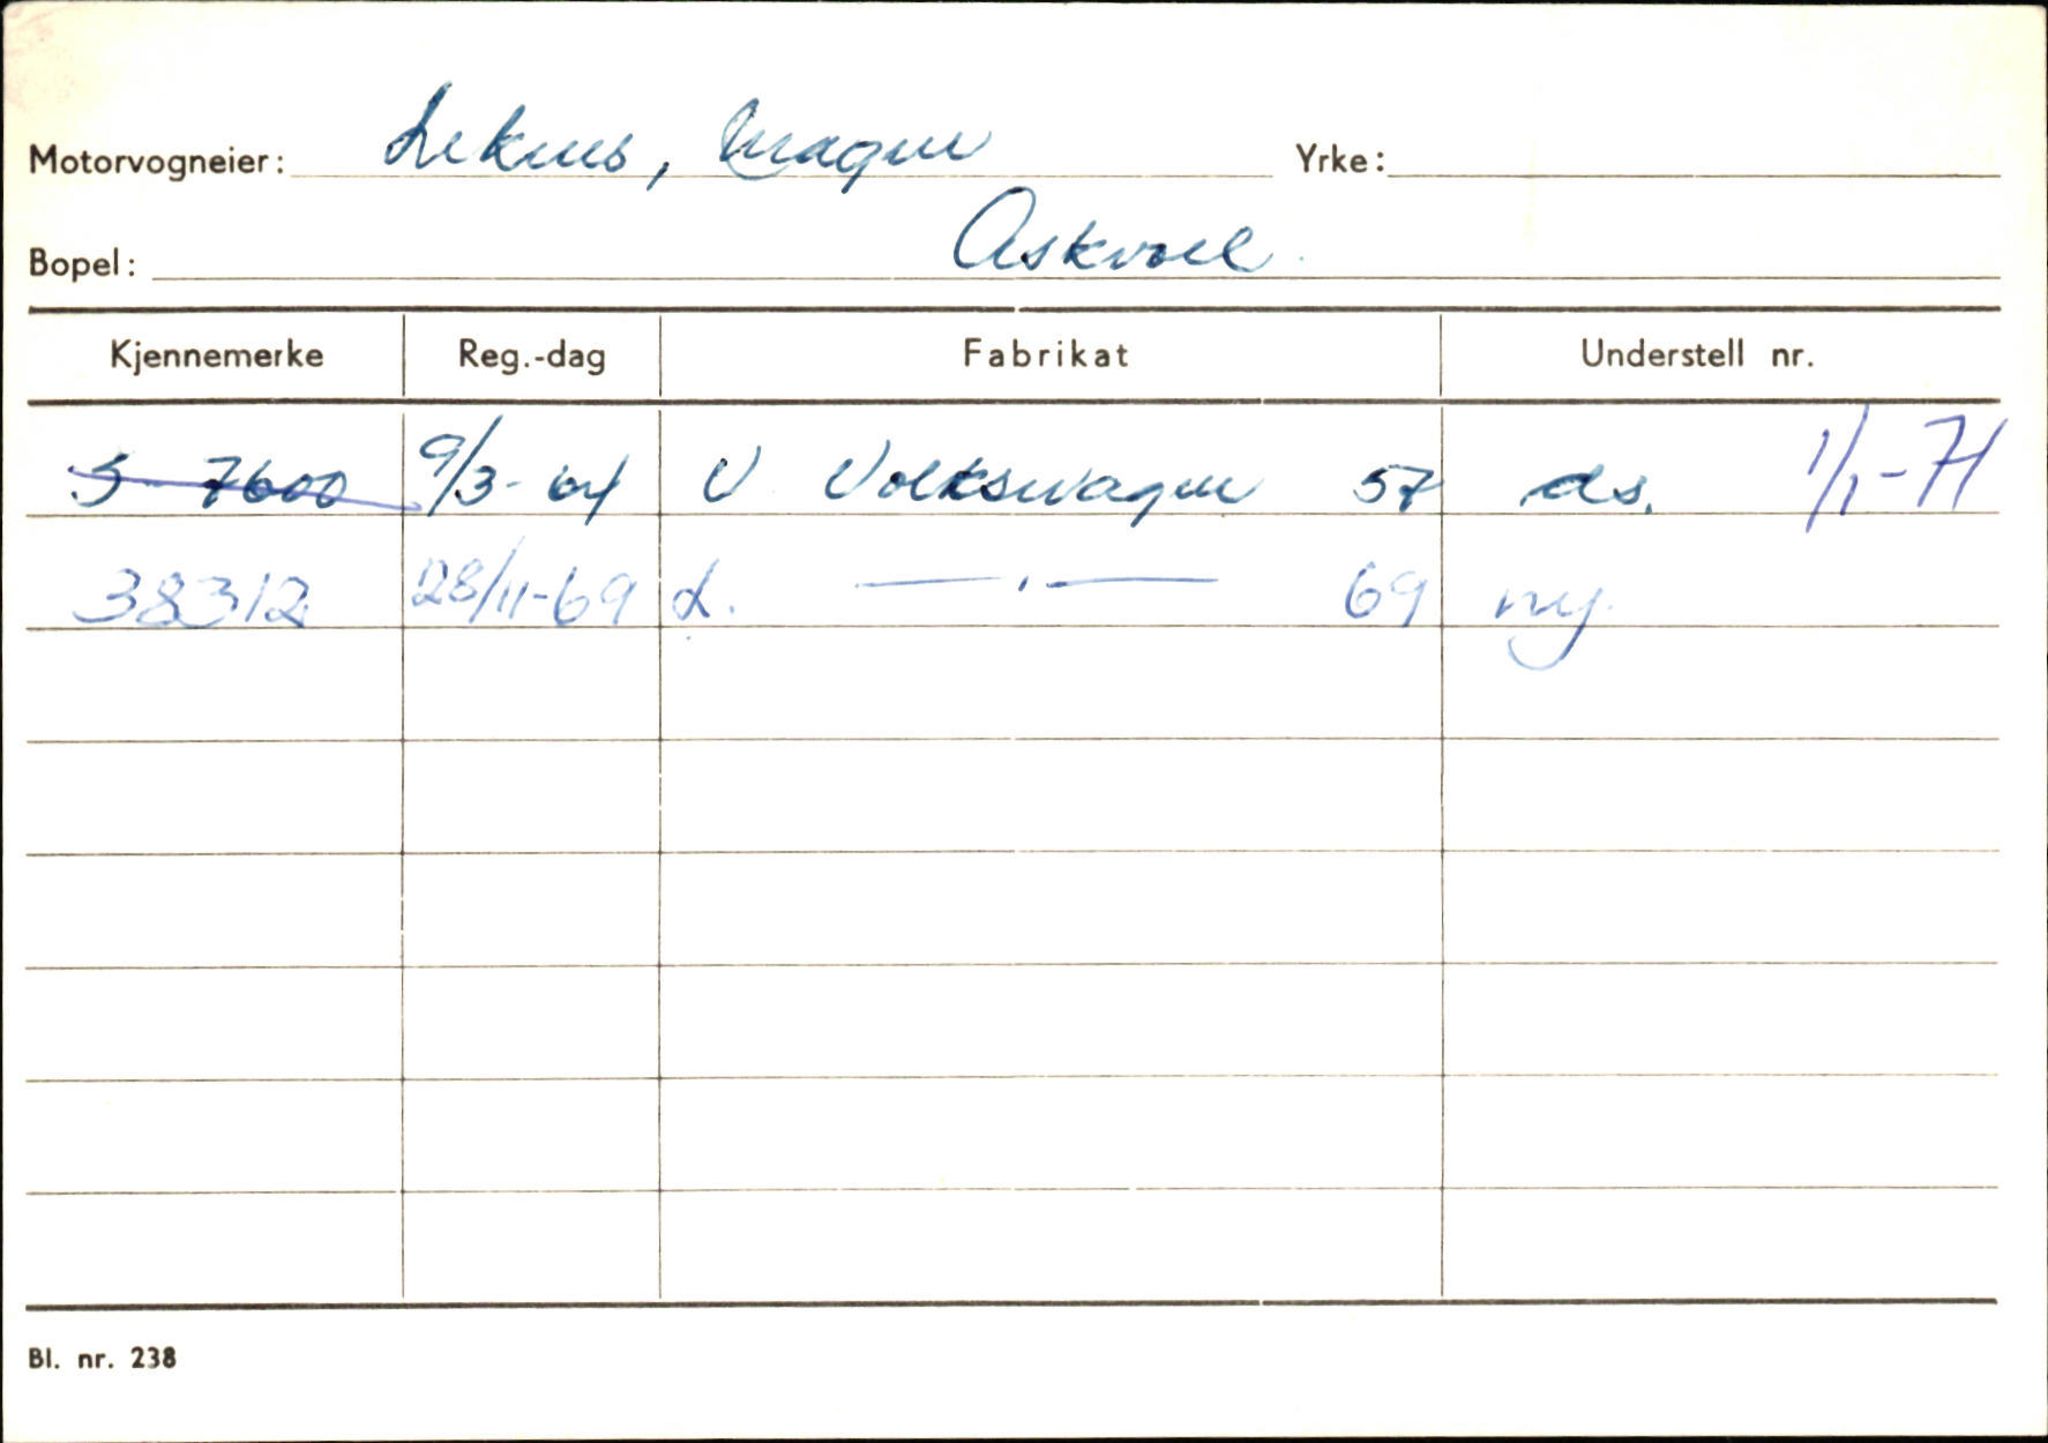 Motorvogneier: Leknes, Magne Yrke:
Bopel: Askvoll
Kjennemerke Reg.-dag Fabrikat Understell nr.
S 7600 9/3-64 V Volkswagen 57 ds. 1/1-71
38312 28/11-69 L. —— " —— 69 ny.
Bl. nr. 238